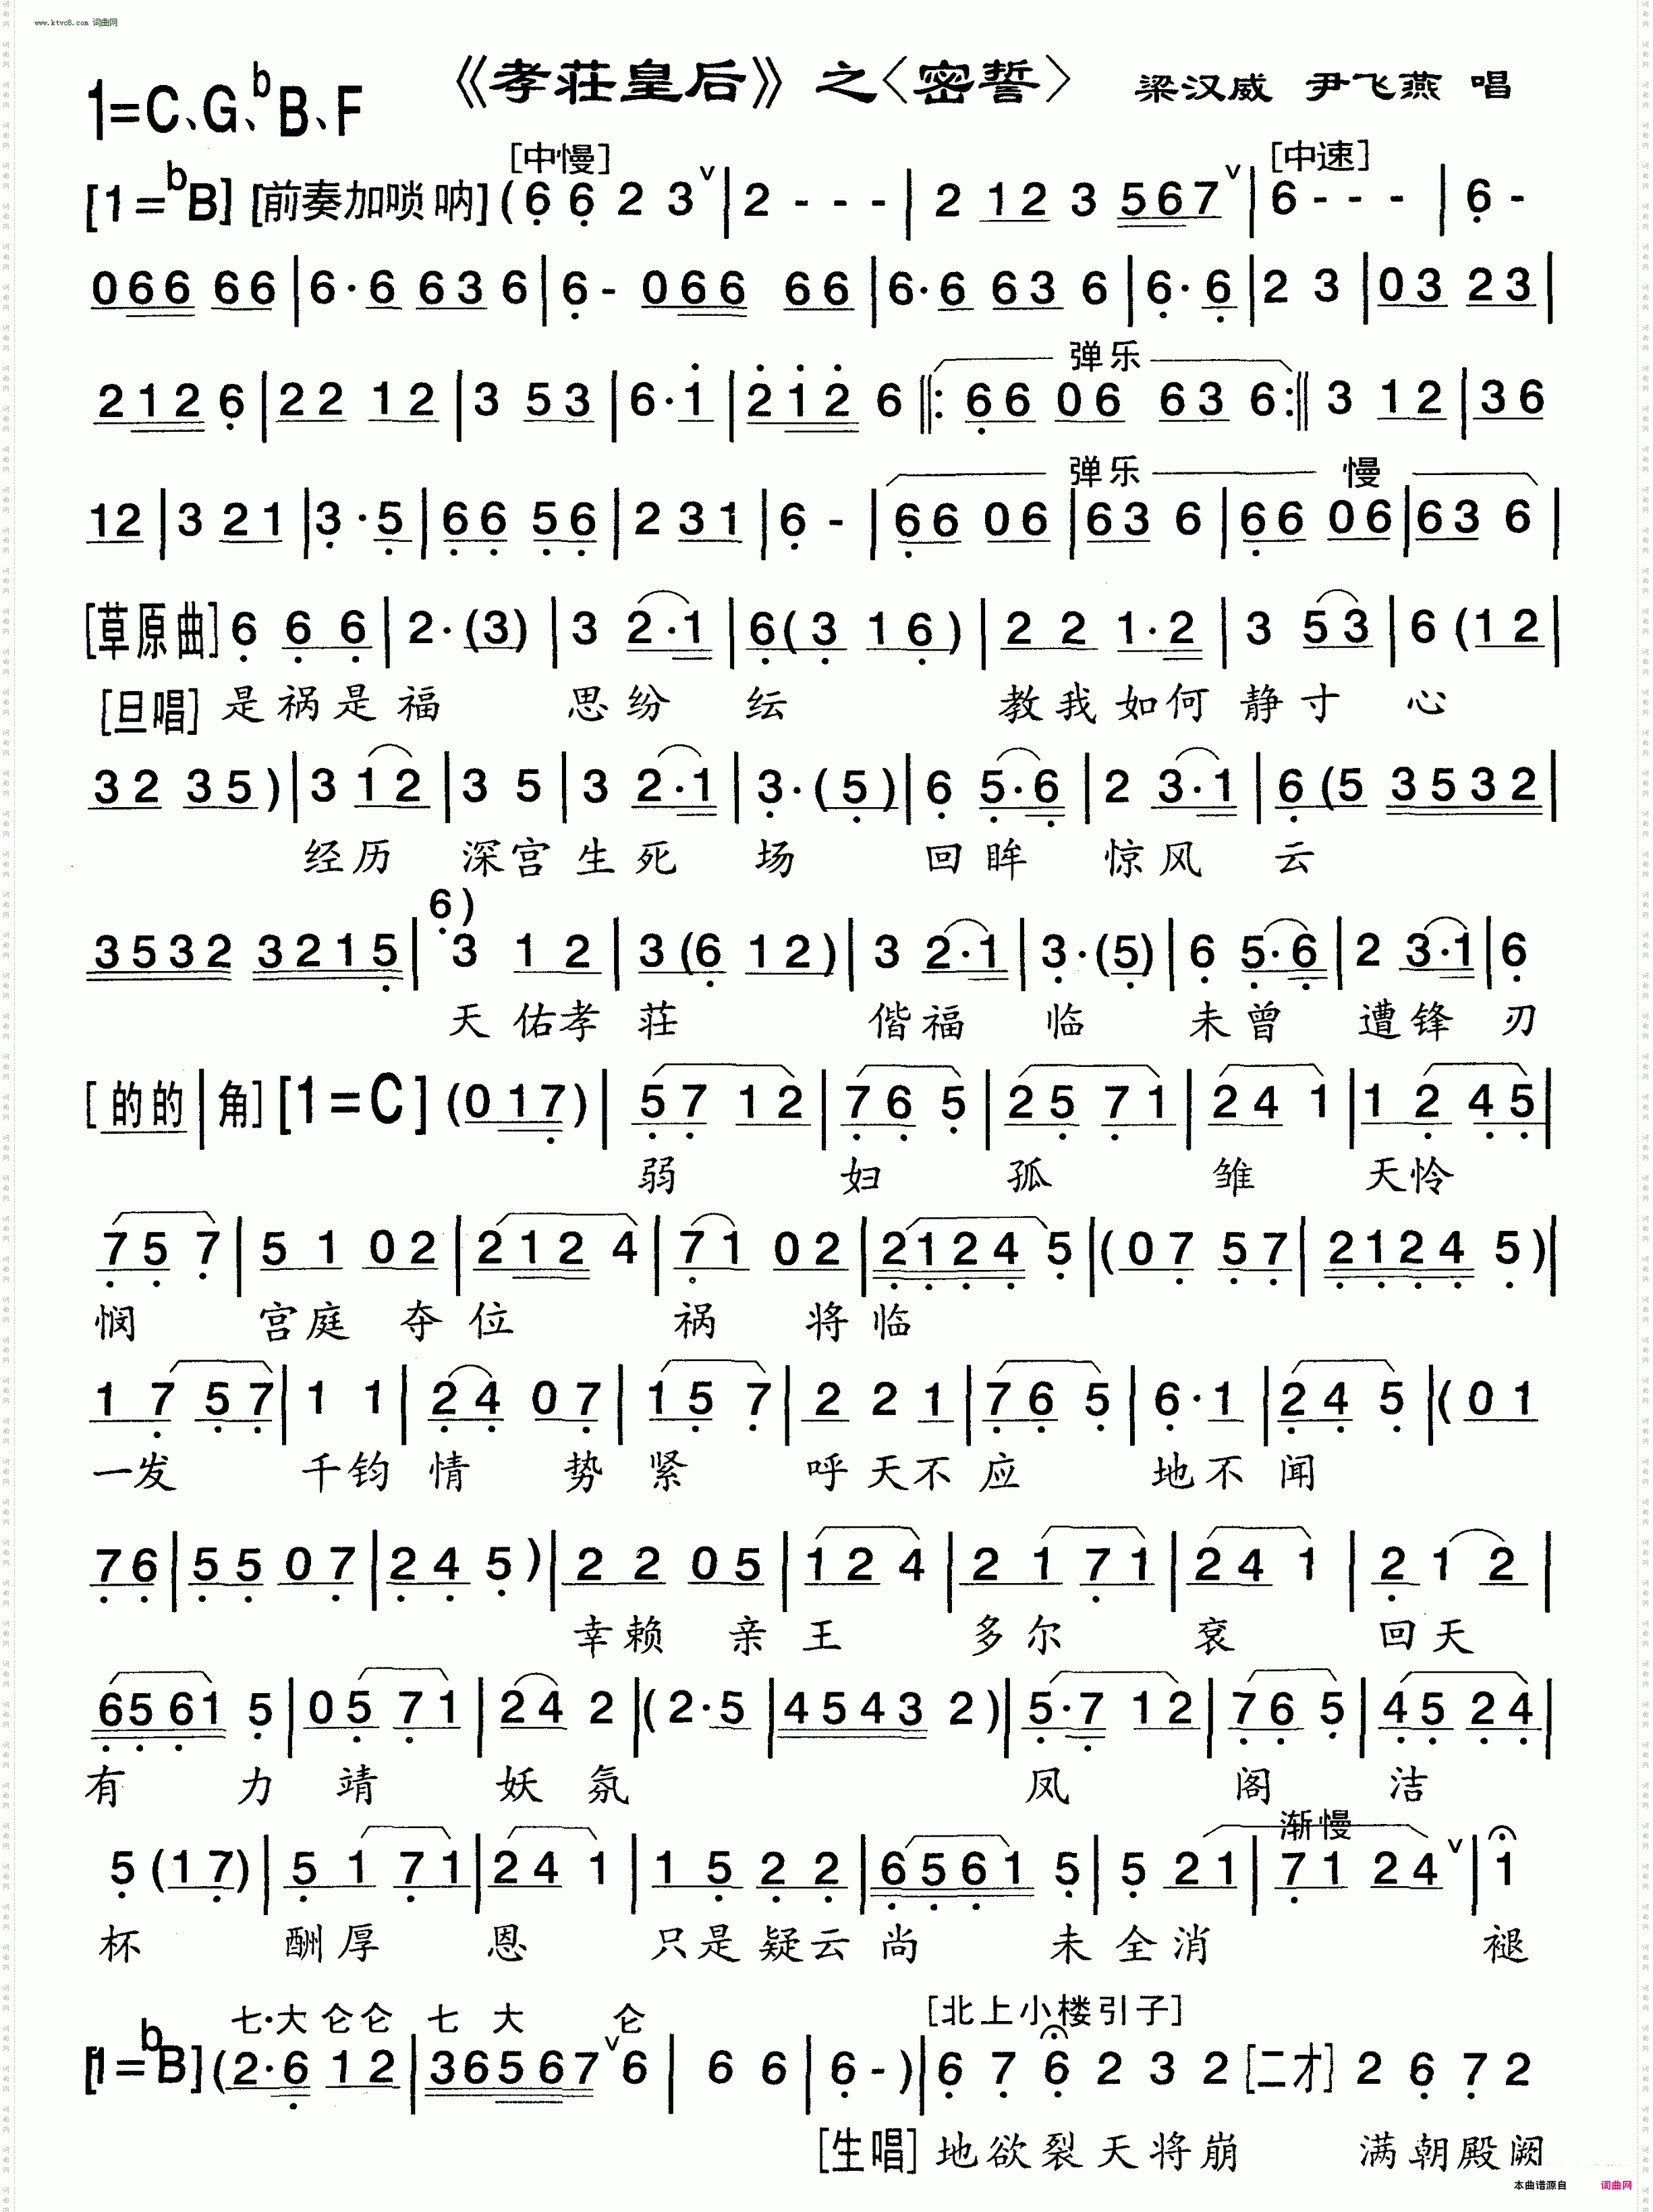 www.ktvc8.com 词曲网
《孝荘皇后》之〈密誓〉 梁汉威 尹飞燕 唱
1=C、G、bB、F
[中慢] [中速]
[1=bB] [前奏加唢呐] (6 6 2 3 ˅| 2 - - - | 2 12 3 567 ˅| 6 - - - | 6 -
066 66 | 6· 6 63 6 | 6 - 066 66 | 6· 6 63 6 | 6· 6 | 2 3 | 03 23 |
弹乐
212 6 | 22 12 | 3 53 | 6· 1 | 212 6 ‖: 66 06 63 6 :‖ 3 12 | 36
弹乐 慢
12 | 3 21 | 3· 5 | 66 56 | 2 31 | 6 - | 66 06 | 63 6 | 66 06 | 63 6 |
[草原曲] 6 6 6 | 2· (3) | 3 2·1 | 6(3 16) | 2 2 1·2 | 3 53 | 6 (12 |
[旦唱] 是祸是福 思纷纭 教我如何静寸心
32 35) | 3 12 | 3 5 | 3 2·1 | 3· (5) | 6 5·6 | 2 3·1 | 6 (5 3532 |
经历 深宫生死 场 回眸 惊风 云
6)
3532 3215 | 3 1 2 | 3 (6 12) | 3 2·1 | 3· (5) | 6 5·6 | 2 3·1 | 6
天佑孝荘 偕福 临 未曾 遭锋 刃
[的的 | 角] [1=C] (017) | 57 12 | 76 5 | 25 71 | 24 1 | 12 45 |
弱 妇 孤 雏 天怜
75 7 | 51 02 | 212 4 | 71 02 | 2124 5 | (07 57 | 2124 5) |
悯 宫庭 夺位 祸 将临
17 57 | 1 1 | 24 07 | 15 7 | 2 2 1 | 76 5 | 6· 1 | 24 5 | (01
一发 千钧 情 势 紧 呼天不应 地不闻
76 | 55 07 | 24 5) | 22 05 | 12 4 | 21 71 | 24 1 | 2 1 2 |
幸赖 亲王 多尔 衮 回天
6561 5 | 05 71 | 24 2 | (2· 5 | 4543 2) | 5·7 12 | 76 5 | 45 24 |
有 力 靖 妖氛 凤 阁 洁
渐慢
5 (17) | 51 71 | 24 1 | 15 22 | 6561 5 | 5 21 | 71 24 ˅| 1
杯 酬厚 恩 只是疑云尚 未全消 褪
七·大 仑仑 七 大 仑 [北上小楼引子]
[1=bB] (2·6 12 | 36567 ˅6 | 6 6 | 6 -) | 6 7 6 2 3 2 [二才] 2 6 7 2
[生唱] 地欲裂天将崩 满朝殿阙
本曲谱源自 词曲网